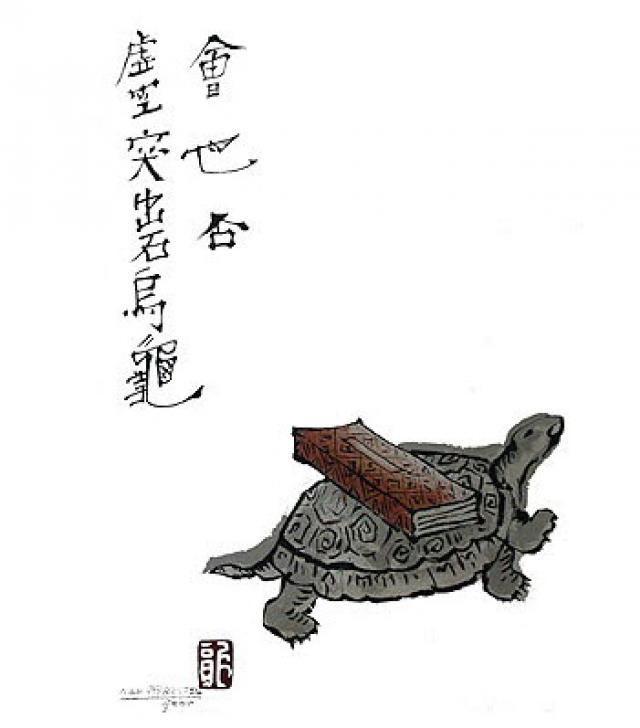 會也否
虛空突出石烏龜